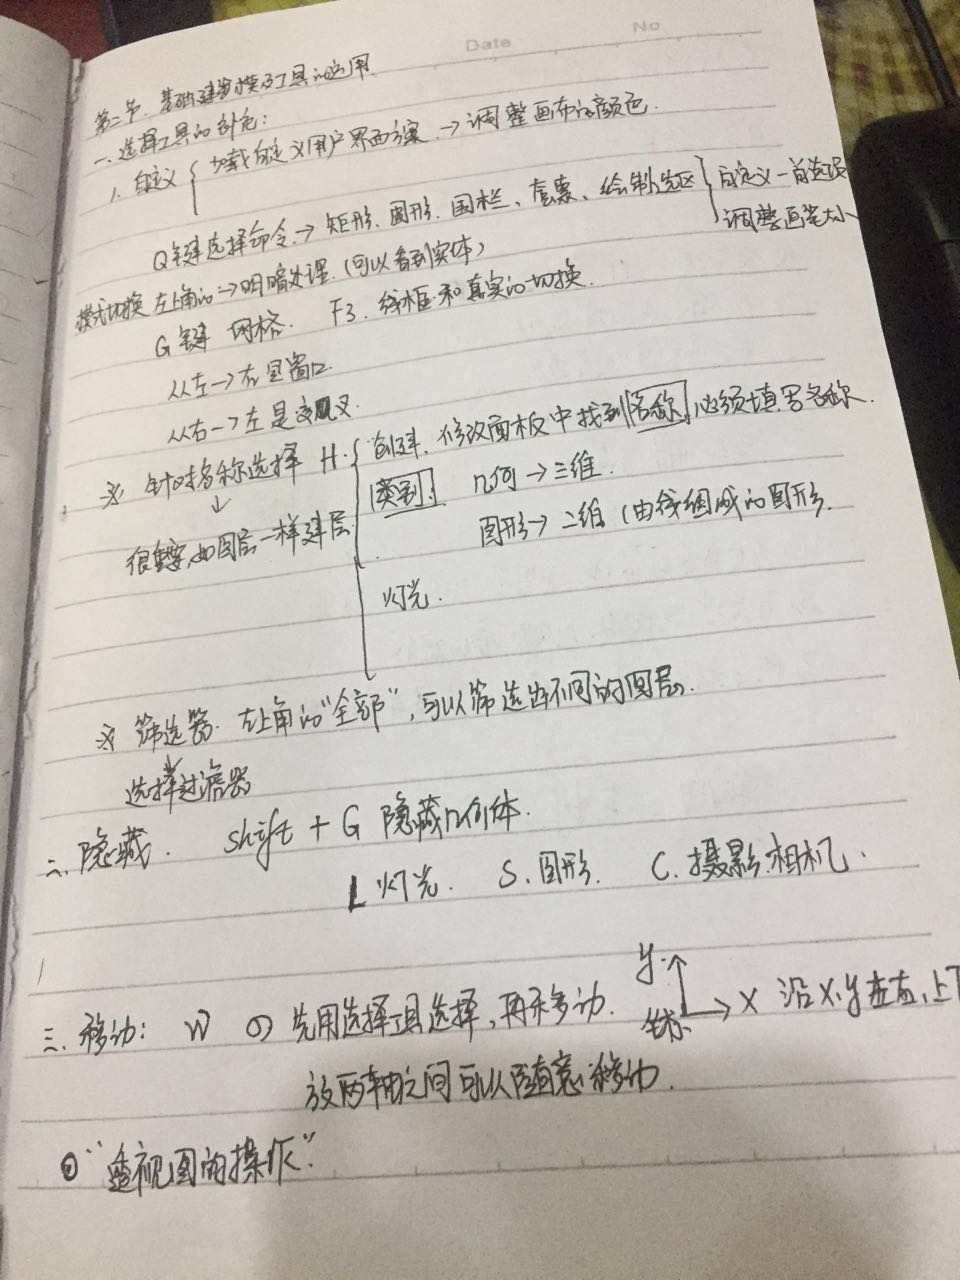 Date No
第二节、基础建模及工具的运用
一、选择工具的补充:
1. 自定义 { 加载自定义用户界面方案 → 调整画布的颜色.
Q键选择命令 → 矩形、圆形、围栏、套索、绘制选区 } 自定义-首选项
调整画笔大小
模式切换 左上角的 → 明暗处理.(可以看到实体)
G键 网格. F3. 线框和真实的切换.
从左→右是窗口.
从右→左是交叉.
※ 针对名称选择 H. { 创建、修改面板中找到名称,必须填写名称.
↓ 类别. 几何→三维.
很重要,如图层一样建层 图形→二维(由线组成的图形.
灯光.
※ 筛选器. 左上角的“全部”,可以筛选出不同的图层.
选择过滤器
二、隐藏. shift + G 隐藏几何体.
L 灯光. S. 图形. C. 摄影.相机.
三、移动: W ① 先用选择工具选择,再来移动. y → X 沿X.y左右、上下
放两轴之间可以随意移动.
② “透视图的操作”.